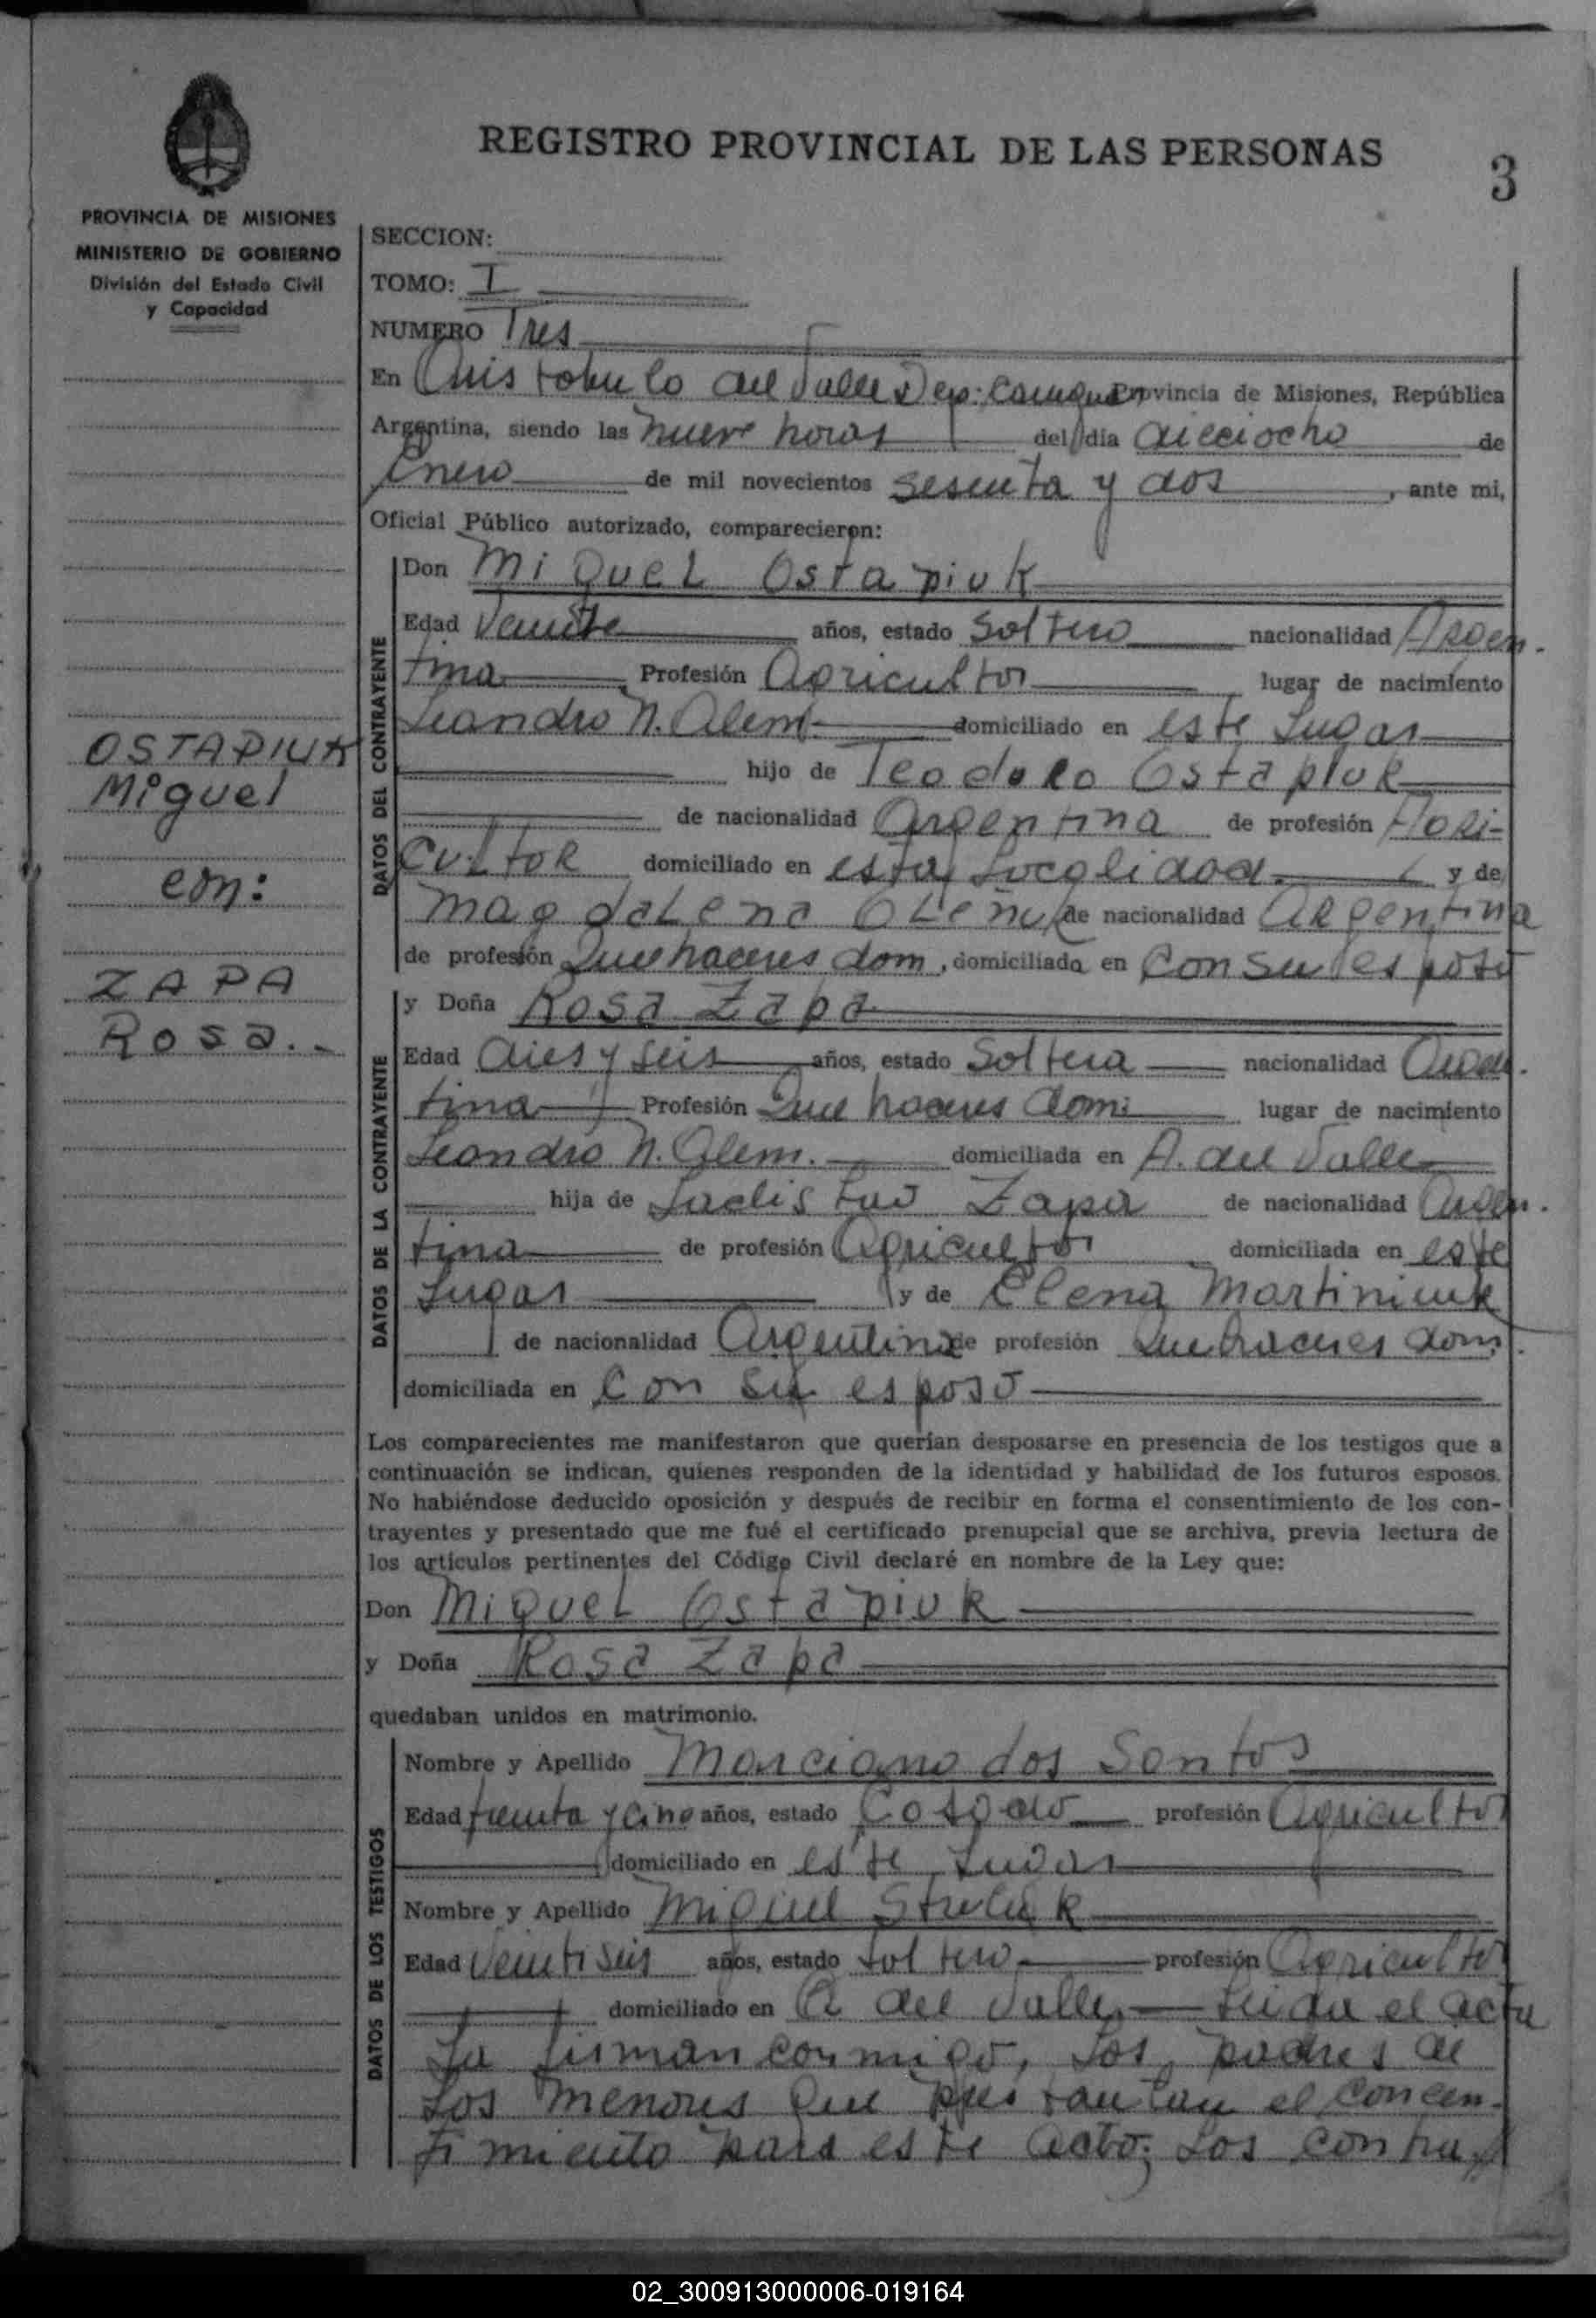 REGISTRO PROVINCIAL DE LAS PERSONAS
3
PROVINCIA DE MISIONES
MINISTERIO DE GOBIERNO
División del Estado Civil
y Capacidad
OSTAPIUK
Miguel
con:
ZAPA
Rosa.-
SECCION:
TOMO: I
NUMERO Tres
En Aristobulo del Valle Dep: Cainguas Provincia de Misiones, República
Argentina, siendo las nueve horas del día dieciocho de
Enero de mil novecientos sesenta y dos, ante mi,
Oficial Público autorizado, comparecieron:
DATOS DEL CONTRAYENTE
Don Miguel Ostapiuk
Edad Veinte años, estado Soltero nacionalidad Argen-
tina Profesión Agricultor lugar de nacimiento
Leandro N. Alem. domiciliado en este Lugar
hijo de Teodoro Ostapiuk
de nacionalidad Argentina de profesión Agri-
cultor domiciliado en esta Localidad. y de
Magdalena de nacionalidad Argentina
de profesión Quehaceres dom, domiciliada en Con su esposo
DATOS DE LA CONTRAYENTE
y Doña Rosa Zapa
Edad dies y seis años, estado Soltera nacionalidad Argen-
tina Profesión Que haceres domi lugar de nacimiento
Leandro N. Alem. domiciliada en A. del Valle
hija de Ladislao Zapa de nacionalidad Argen-
tina de profesión Agricultor domiciliada en este
Lugar y de Elena Martiniuk
de nacionalidad Argentina de profesión Quehaceres dom.
domiciliada en Con su esposo
Los comparecientes me manifestaron que querían desposarse en presencia de los testigos que a
continuación se indican, quienes responden de la identidad y habilidad de los futuros esposos.
No habiéndose deducido oposición y después de recibir en forma el consentimiento de los con-
trayentes y presentado que me fué el certificado prenupcial que se archiva, previa lectura de
los artículos pertinentes del Código Civil declaré en nombre de la Ley que:
Don Miguel Ostapiuk
y Doña Rosa Zapa
quedaban unidos en matrimonio.
DATOS DE LOS TESTIGOS
Nombre y Apellido Marciano dos Santos
Edad treinta y cinco años, estado Casado profesión Agricultor
domiciliado en este Lugar
Nombre y Apellido Miguel
Edad Veintiseis años, estado soltero profesión Agricultor
domiciliado en A del Valle Leida el acta
La firman conmigo, Los padres de
Los menores que prestan el concen-
timiento para este acto; Los contra
02_300913000006-019164